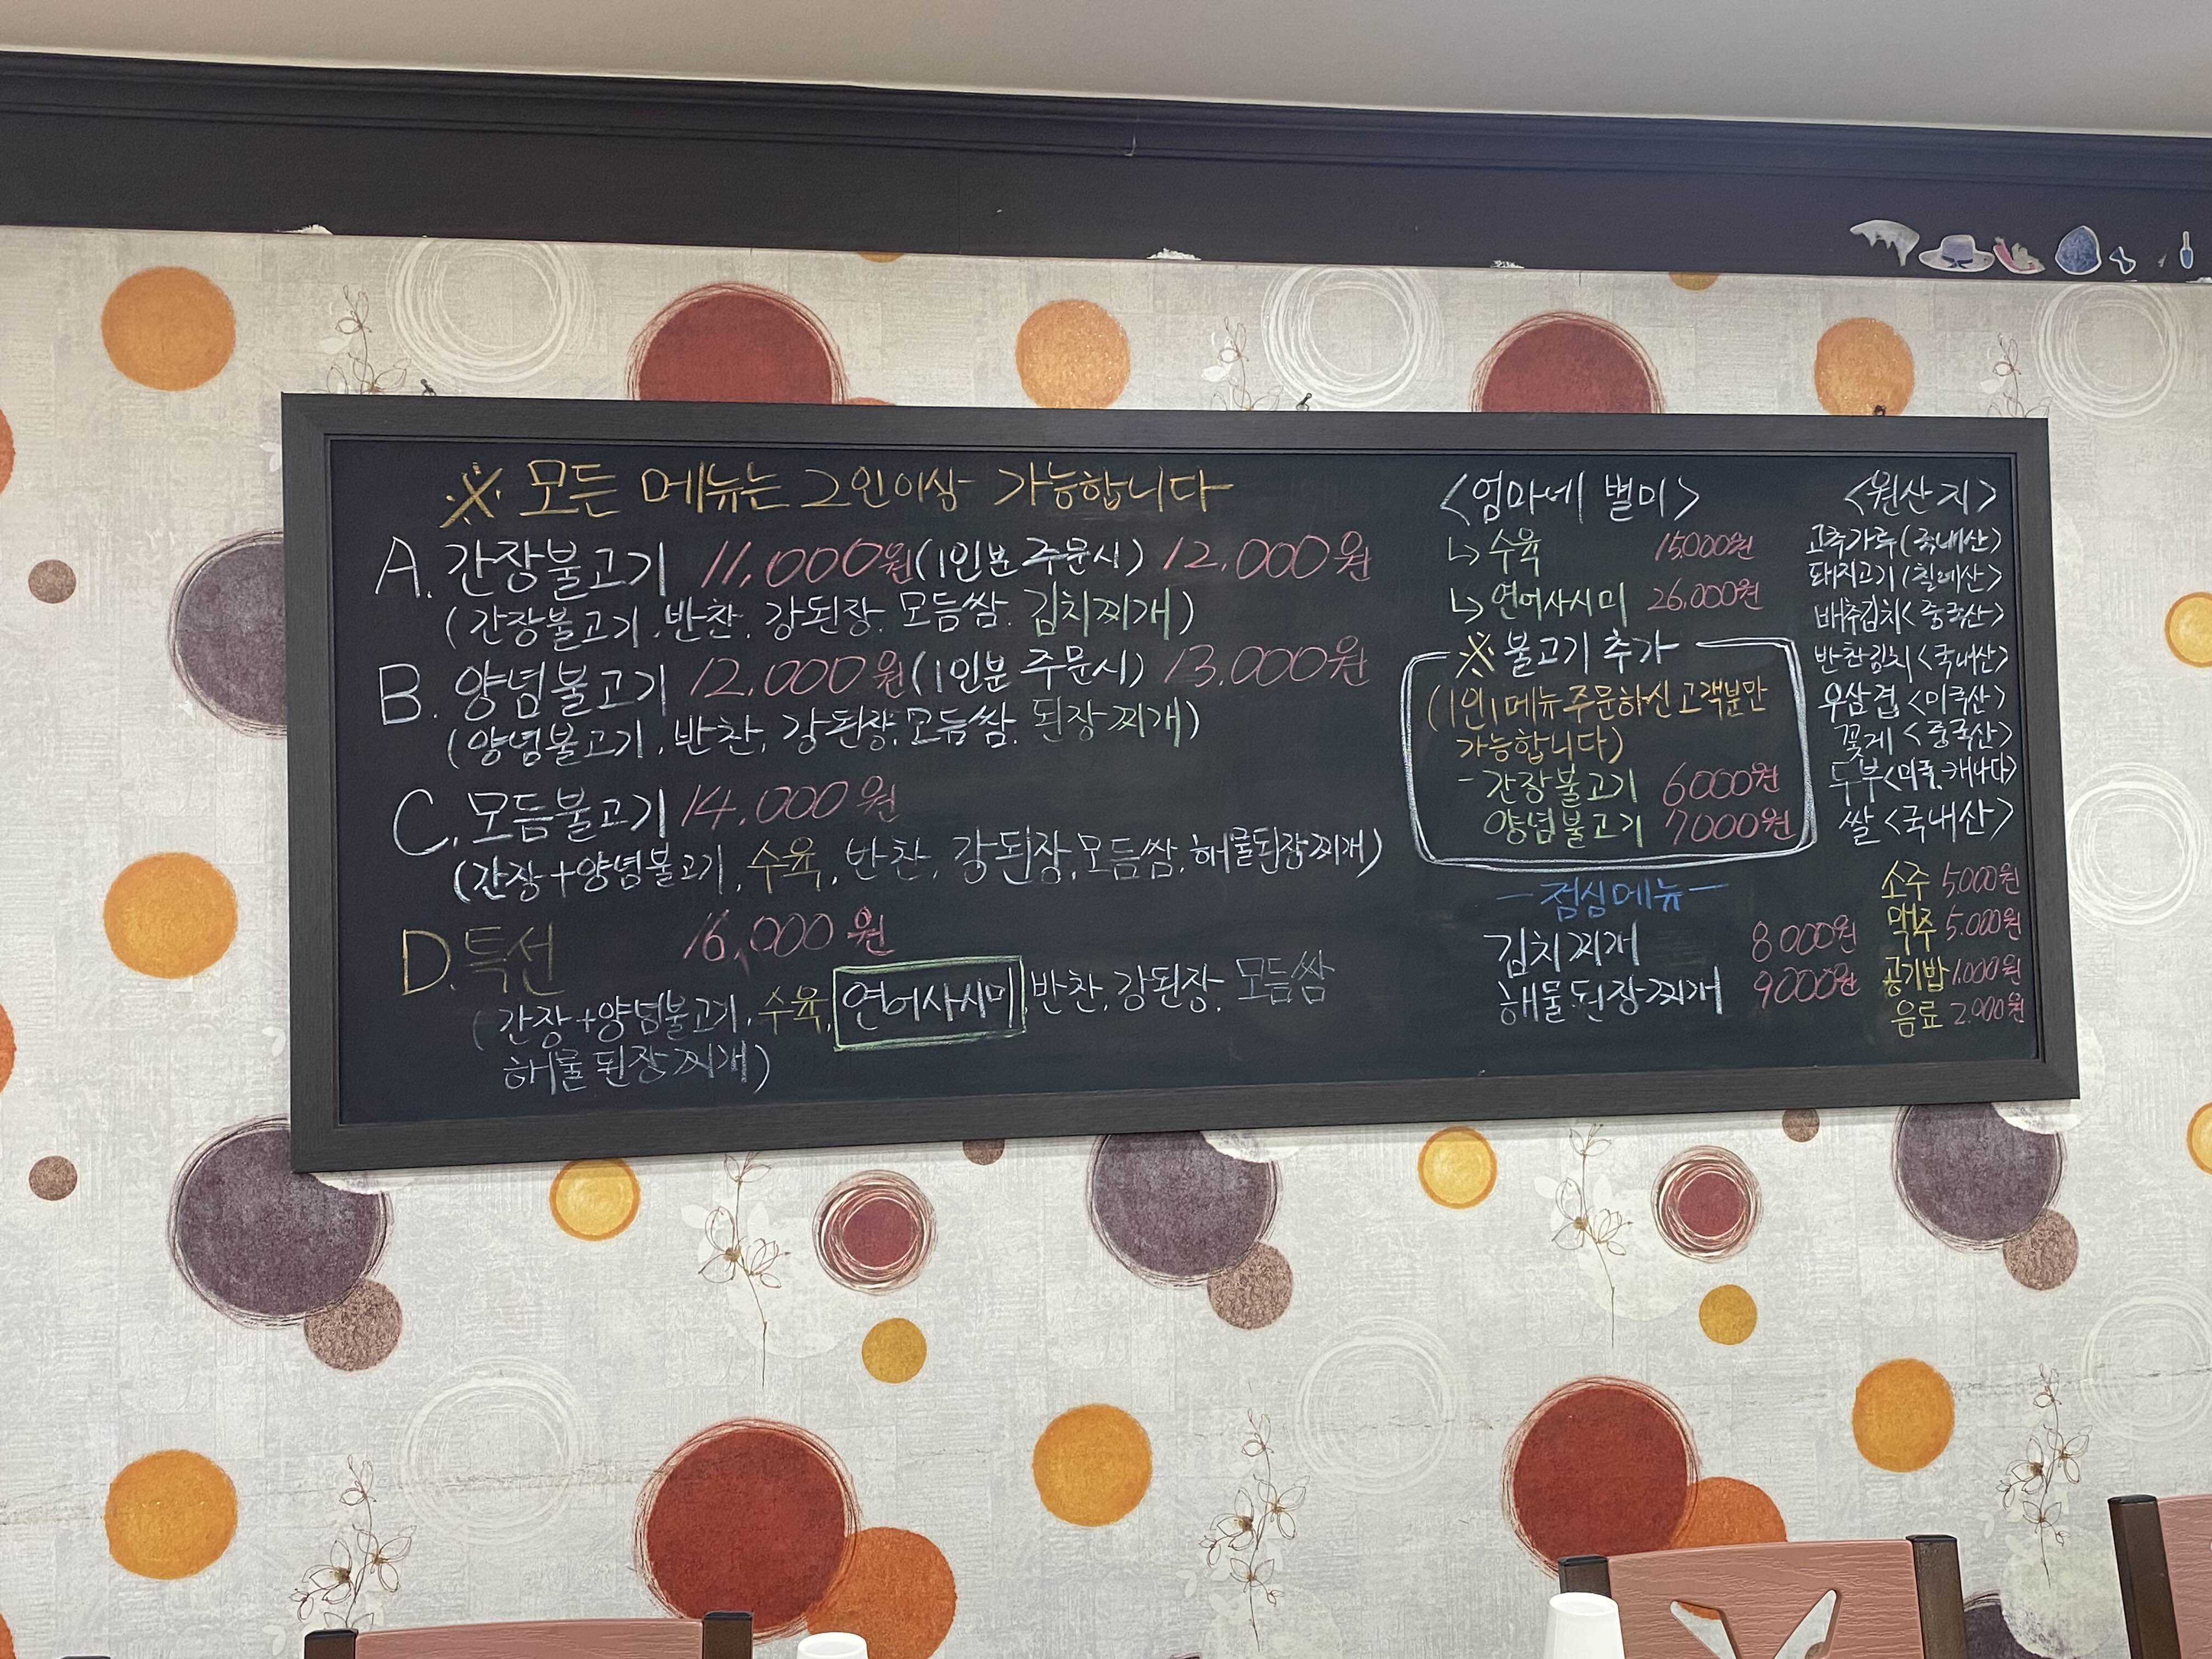 ※ 모든 메뉴는 2인이상 가능합니다
A. 간장불고기 11,000원 (1인분 주문시) 12.000원
(간장불고기, 반찬, 강된장. 모듬쌈. 김치찌개)
B. 양념불고기 12.000원 (1인분 주문시) 13.000원
(양념불고기, 반찬, 강된장, 모듬쌈. 된장찌개)
C. 모듬불고기 14,000원
(간장+양념불고기, 수육, 반찬, 강된장, 모듬쌈, 해물된장찌개)
D. 특선 16,000원
(간장+양념불고기, 수육, 연어사시미, 반찬, 강된장, 모듬쌈
해물된장찌개)
<엄마네 별미>
↳ 수육 15,000원
↳ 연어사시미 26,000원
※ 불고기 추가
(1인1메뉴 주문하신 고객분만
가능합니다)
- 간장불고기 6000원
양념불고기 7000원
- 점심메뉴 -
김치찌개 8000원
해물된장찌개 9000원
<원산지>
고추가루 (국내산)
돼지고기 (칠레산)
배추김치 <중국산>
반찬김치 <국내산>
우삼겹 <미국산>
꽃게 <중국산>
두부 <미국, 캐나다>
쌀 <국내산>
소주 5,000원
맥주 5.000원
공기밥 1,000원
음료 2.000원